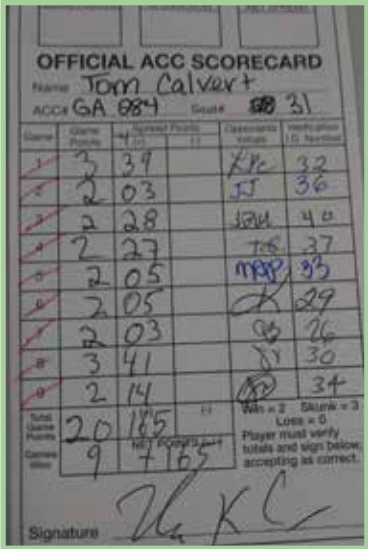 OFFICIAL ACC SCORECARD
Name Tom Calvert
ACC# GA 084 Seat# 31
Game Game Points Spread Points (+) (-) Opponents Initials Verification I.D. Number
1 3 39 32
2 2 03 JJ 36
3 2 28 40
4 2 27 37
5 2 05 33
6 2 05 29
7 2 03 26
8 3 41 30
9 2 14 34
Total Game Points 20 165 (-) Win = 2 Skunk = 3
Loss = 0
Games Won 9 NET POINTS + 165 Player must verify
totals and sign below,
accepting as correct.
Signature